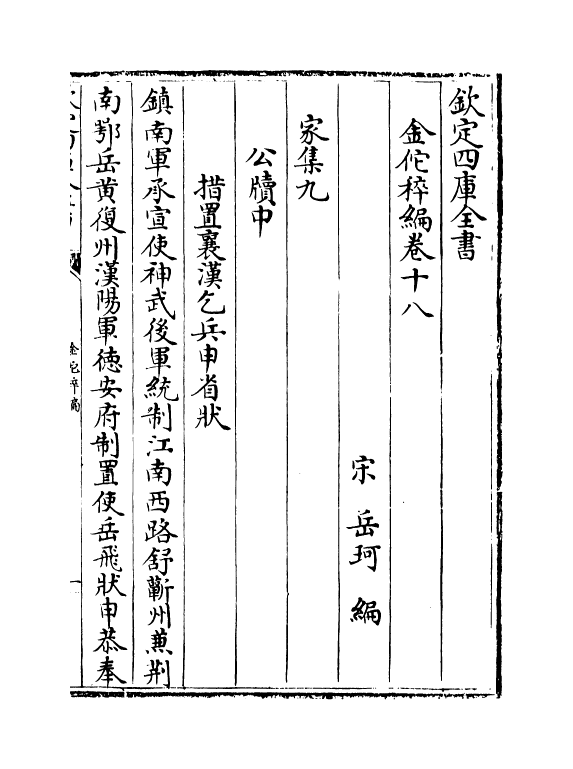 欽定四庫全書
金佗稡編卷十八
宋　岳珂　編
家集九
公牘中
措置襄漢乞兵申省狀
鎮南軍承宣使神武後軍統制江南西路舒蘄州兼荆
南鄂岳黄復州漢陽軍徳安府制置使岳飛狀申恭奉
金佗稡編
一